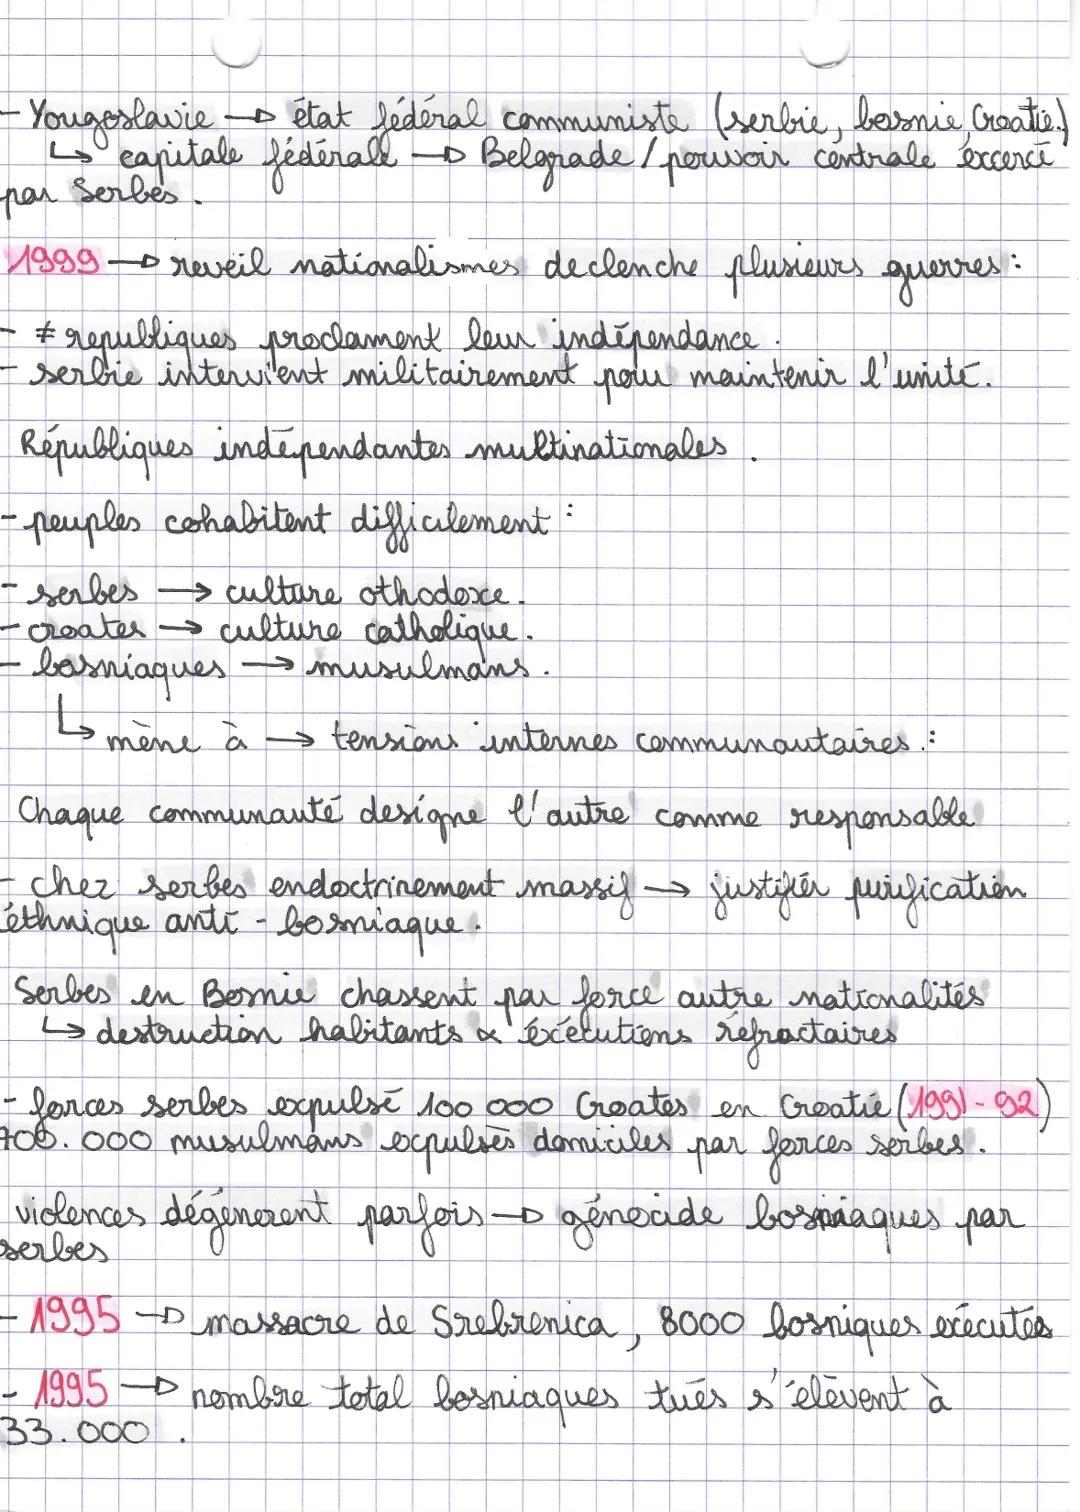 - Yougoslavie → état fédéral communiste (serbie, bosnie, Croatie.)
↳ capitale fédérale → Belgrade / pouvoir centrale éxcercé
par Serbes.
1999 → reveil nationalismes declenche plusieurs guerres :
- ≠ republiques proclament leur indépendance.
- serbie intervient militairement pour maintenir l'unité.
Républiques indépendantes multinationales.
- peuples cohabitent difficilement :
- serbes → culture othodoxe.
- croates → culture catholique.
- bosniaques → musulmans.
↳ mène à → tensions internes communautaires. :
Chaque communauté designe l'autre comme responsable
- chez serbes endoctrinement massif → justifier purification
éthnique anti - bosniaque.
Serbes en Bosnie chassent par force autre nationalités
↳ destruction habitants & éxécutions réfractaires
- forces serbes expulsé 100 000 Croates en Croatie (1991 - 92)
700.000 musulmans expulsés domiciles par forces serbes.
violences dégénerent parfois → génocide bosniaques par
serbes
- 1995 → massacre de Srebrenica, 8000 bosniques exécutés
- 1995 → nombre total bosniaques tués s'élèvent à
33.000.